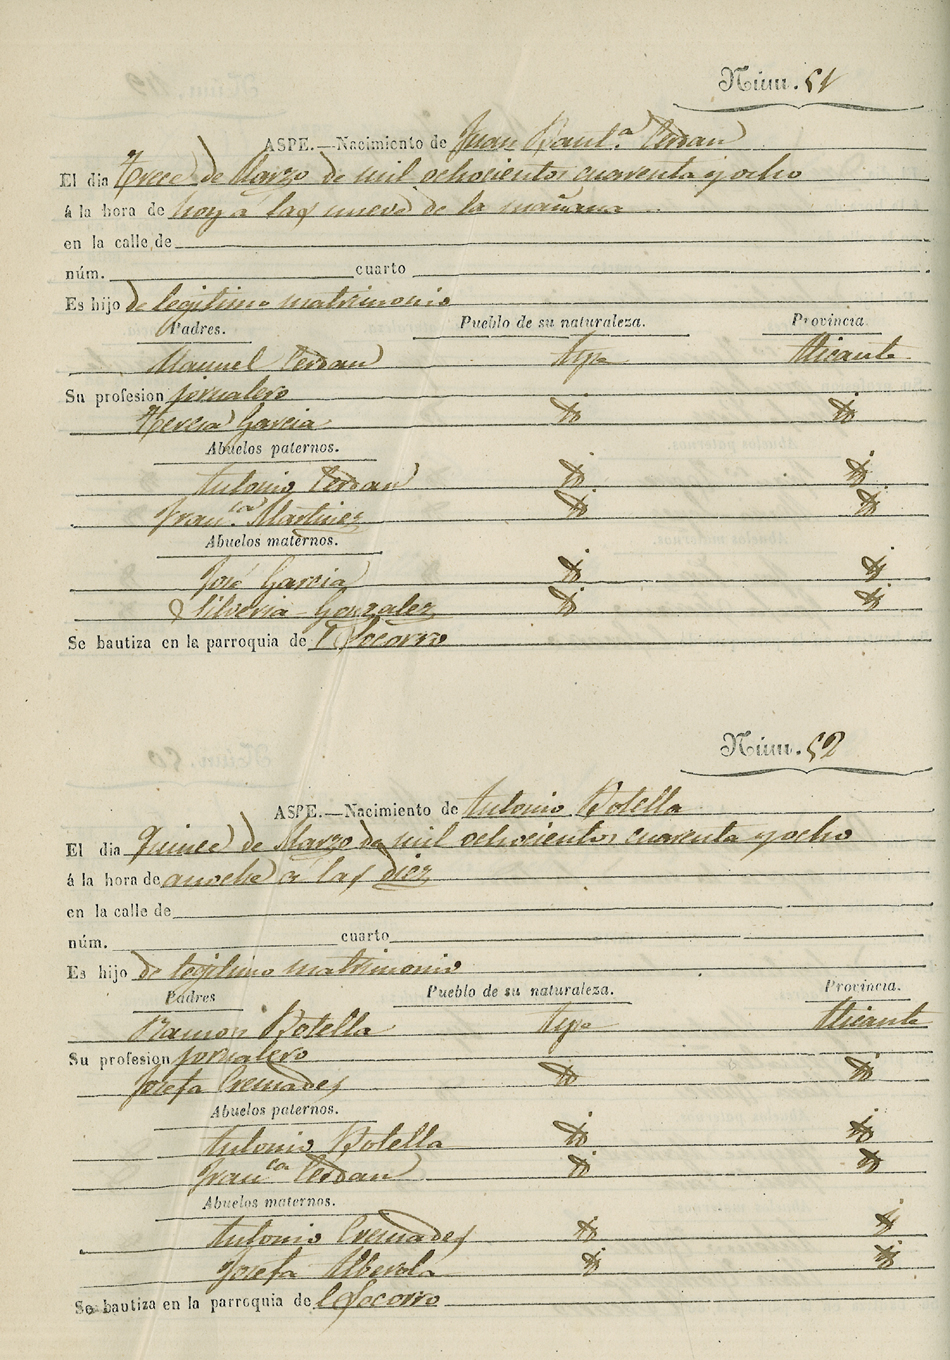 Núm. 51
ASPE.—Nacimiento de Juan Baut.ª Cerdan
El dia Trece de Marzo de mil ochocientos cuarenta y ocho
á la hora de hoy a las nueve de la mañana
en la calle de
núm. cuarto
Es hijo de legitimo matrimonio
Padres. Pueblo de su naturaleza. Provincia.
Manuel Cerdan Aspe Alicante
Su profesion jornalero
Teresa Garcia
Abuelos paternos.
Antonio Cerdan
Fran.ca Martinez
Abuelos maternos.
José Garcia
Silveria Gonzalez
Se bautiza en la parroquia de Socorro
Núm. 52
ASPE.—Nacimiento de Antonio Botella
El dia Quince de Marzo de mil ochocientos cuarenta y ocho
á la hora de anoche a las diez
en la calle de
núm. cuarto
Es hijo de legitimo matrimonio
Padres Pueblo de su naturaleza. Provincia.
Ramon Botella Aspe Alicante
Su profesion jornalero
Josefa Cremades
Abuelos paternos.
Antonio Botella
Fran.ca Cerdan
Abuelos maternos.
Antonio Cremades
Josefa Alberola
Se bautiza en la parroquia de l Socorro